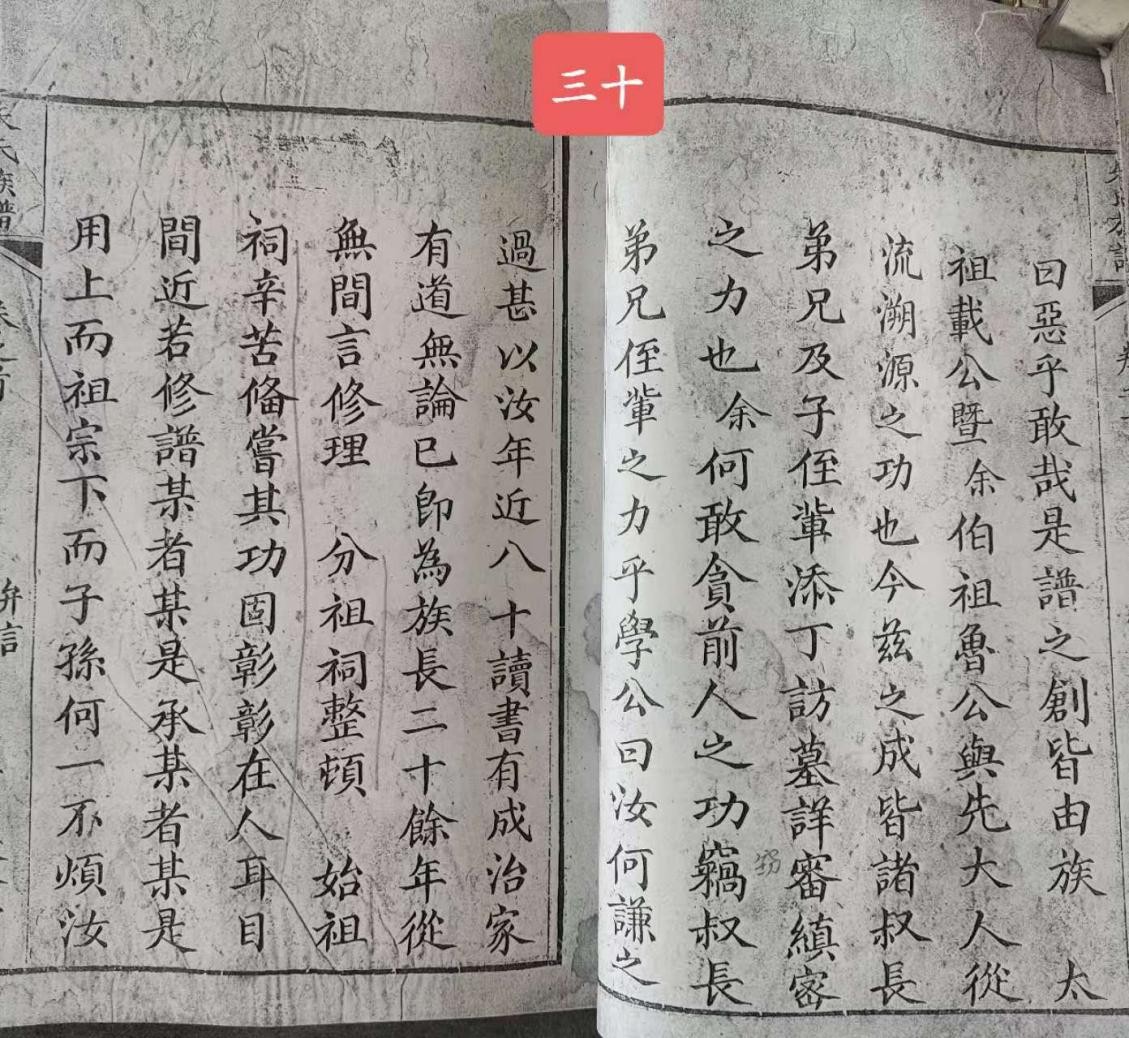 三十
曰惡乎敢哉是譜之創皆由族太
祖載公暨余伯祖魯公與先大人從
流溯源之功也今兹之成皆諸叔長
弟兄及子侄輩添丁訪墓詳審縝密
之力也余何敢貪前人之功竊叔長
窃
弟兄侄輩之力乎學公曰汝何謙之
過甚以汝年近八十讀書有成治家
有道無論已即為族長二十餘年從
無間言修理分祖祠整頓始祖
祠辛苦偹嘗其功固彰彰在人耳目
間近若修譜某者某是承某者某是
用上而祖宗下而子孫何一不煩汝
氏族譜
卷之首
弁言